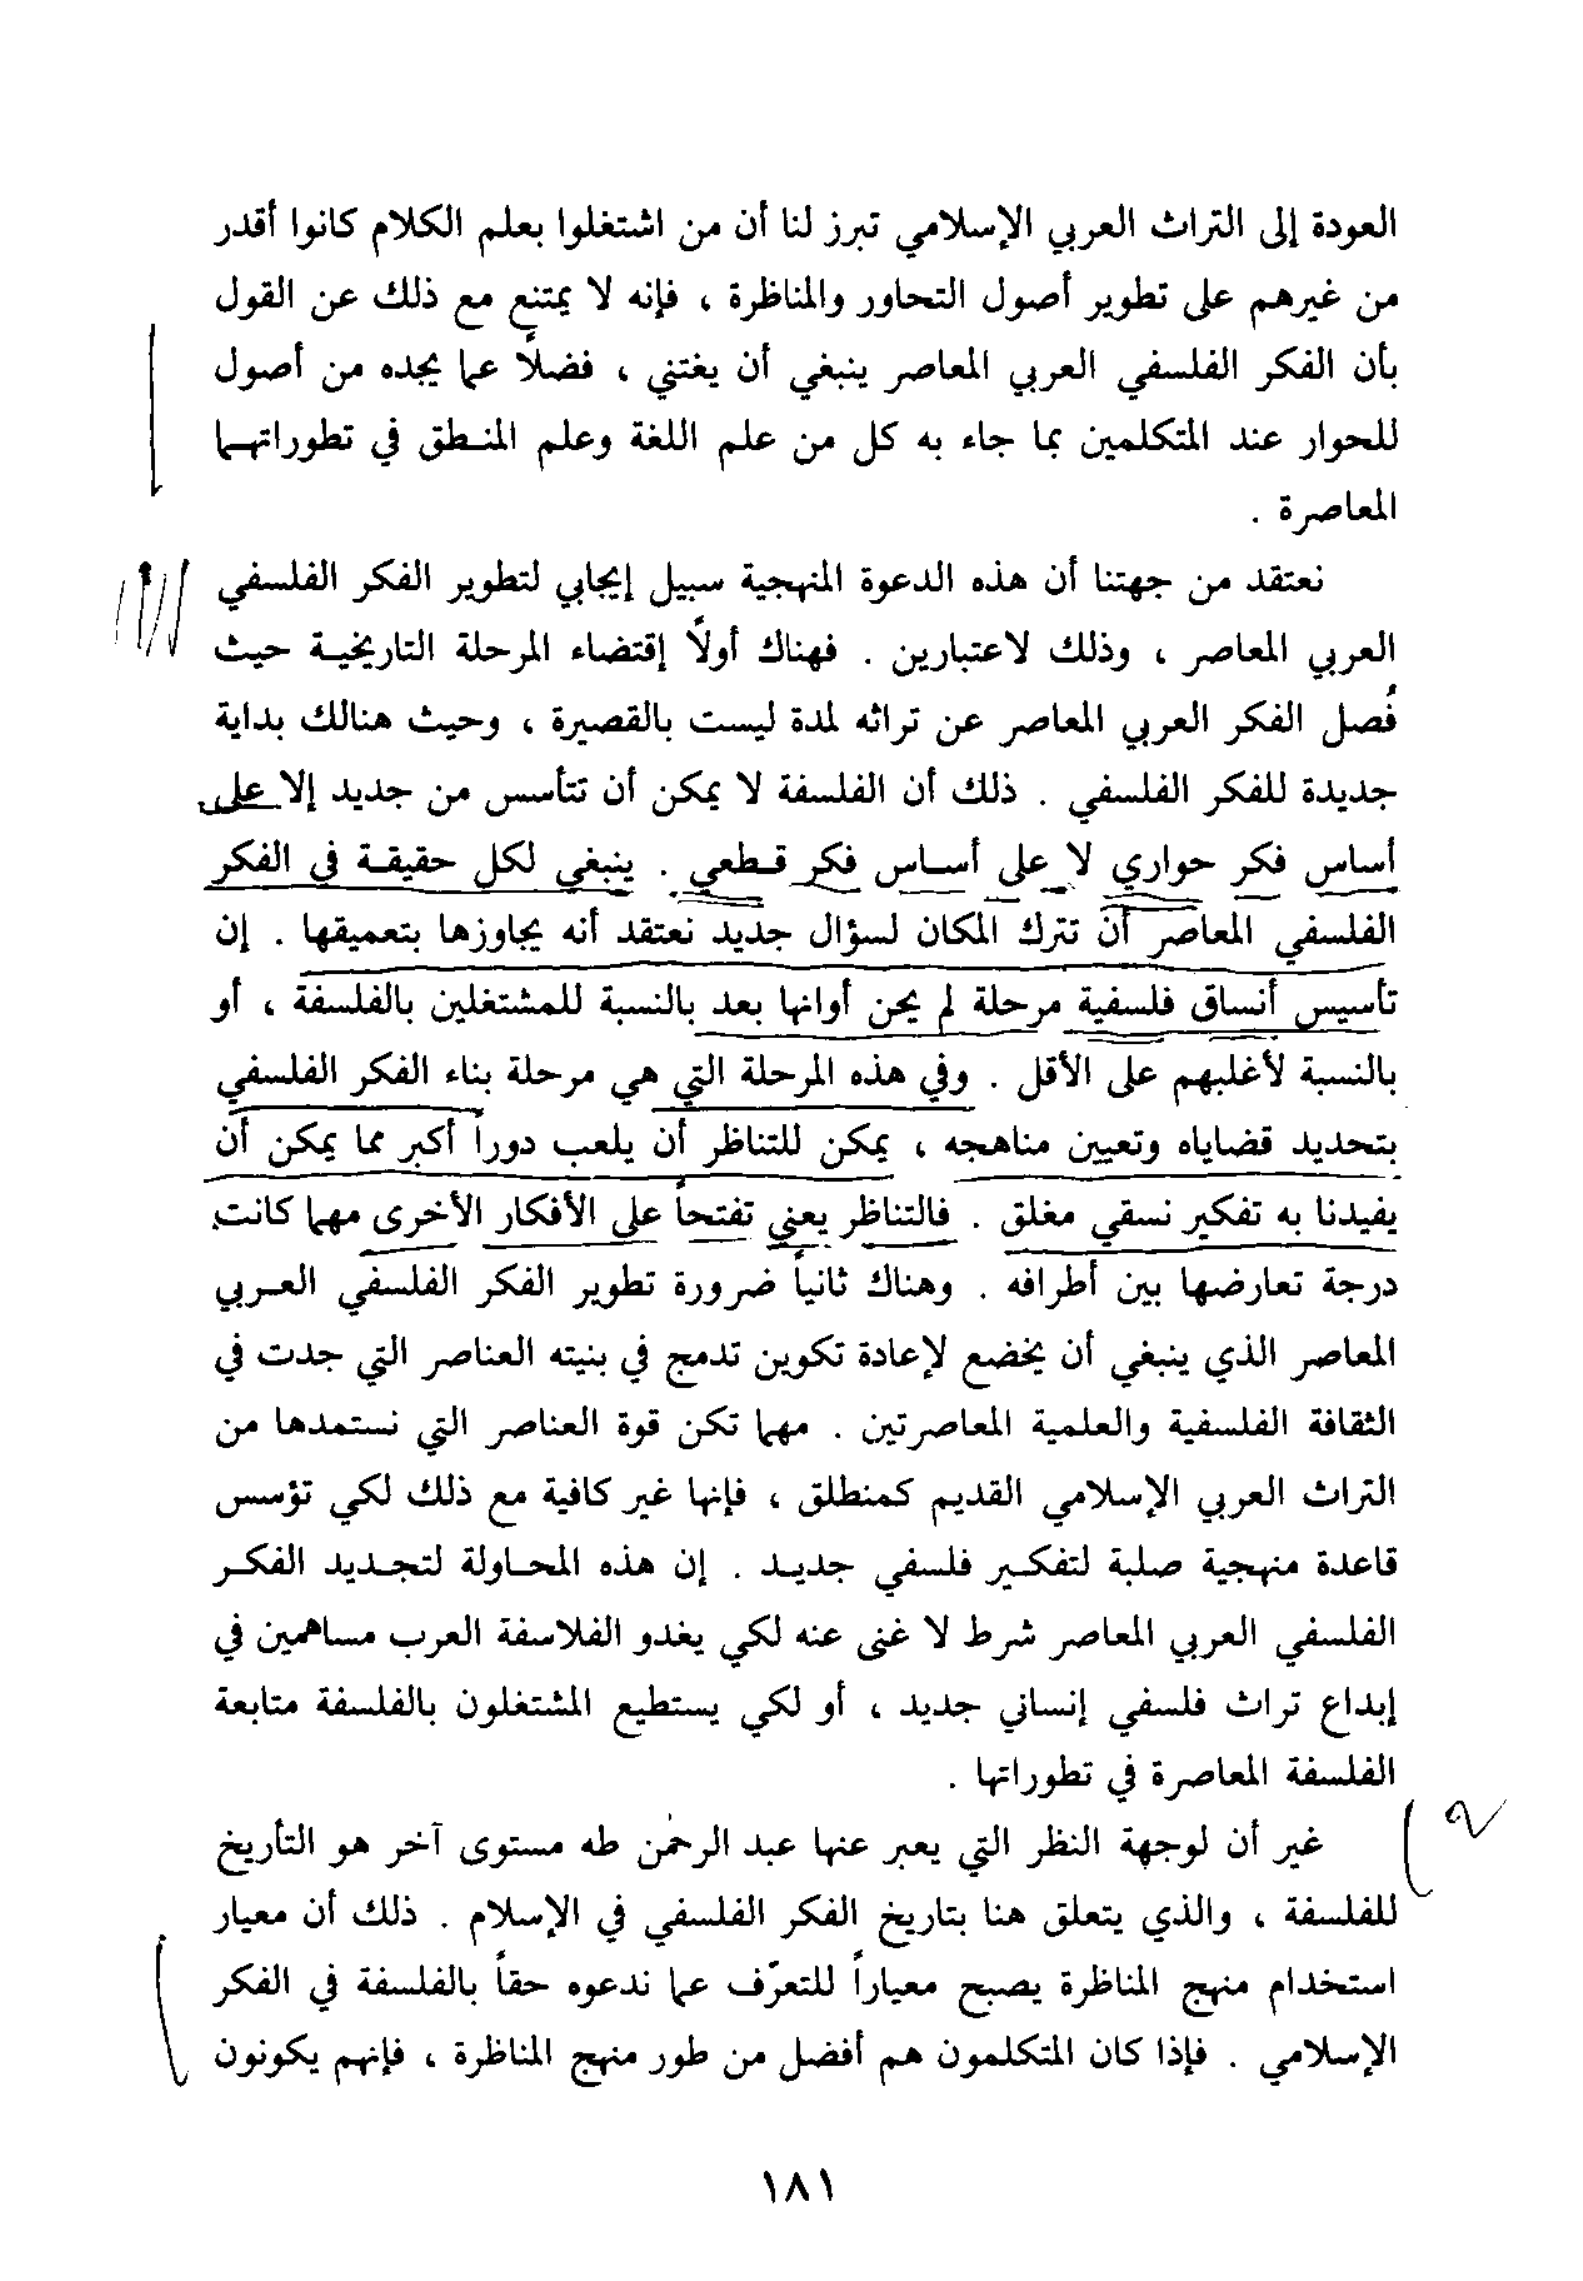 العودة إلى التراث العربي الإسلامي تبرز لنا أن من اشتغلوا بعلم الكلام كانوا أقدر
من غيرهم على تطوير أصول التحاور والمناظرة ، فإنه لا يمتنع مع ذلك عن القول
بأن الفكر الفلسفي العربي المعاصر ينبغي أن يغتني ، فضلاً عما يجده من أصول
للحوار عند المتكلمين بما جاء به كل من علم اللغة وعلم المنـطق في تطوراتهـما
المعاصرة .
نعتقد من جهتنا أن هذه الدعوة المنهجية سبيل إيجابي لتطوير الفكر الفلسفي
العربي المعاصر ، وذلك لاعتبارين . فهناك أولاً إقتضاء المرحلة التاريخيـة حيث
فُصل الفكر العربي المعاصر عن تراثه لمدة ليست بالقصيرة ، وحيث هنالك بداية
جديدة للفكر الفلسفي . ذلك أن الفلسفة لا يمكن أن تتأسس من جديد إلا على
أساس فكر حواري لا على أسـاس فكر قـطعي . ينبغي لكل حقيقـة في الفكر
الفلسفي المعاصر أن تترك المكان لسؤال جديد نعتقد أنه يجاوزها بتعميقها . إن
تأسيس أنساق فلسفية مرحلة لم يحن أوانها بعد بالنسبة للمشتغلين بالفلسفة ، أو
بالنسبة لأغلبهم على الأقل . وفي هذه المرحلة التي هي مرحلة بناء الفكر الفلسفي
بتحديد قضاياه وتعيين مناهجه ، يمكن للتناظر أن يلعب دوراً أكبر مما يمكن أن
يفيدنا به تفكير نسقي مغلق . فالتناظر يعني تفتحاً على الأفكار الأخرى مهما كانت
درجة تعارضها بين أطرافه . وهناك ثانياً ضرورة تطوير الفكر الفلسفي العـربي
المعاصر الذي ينبغي أن يخضع لإعادة تكوين تدمج في بنيته العناصر التي جدت في
الثقافة الفلسفية والعلمية المعاصرتين . مهما تكن قوة العناصر التي نستمدها من
التراث العربي الإسلامي القديم كمنطلق ، فإنها غير كافية مع ذلك لكي تؤسس
قاعدة منهجية صلبة لتفكـير فلسفي جديـد . إن هذه المحـاولة لتجـديد الفكـر
الفلسفي العربي المعاصر شرط لا غنى عنه لكي يغدو الفلاسفة العرب مساهمين في
إبداع تراث فلسفي إنساني جديد ، أو لكي يستطيع المشتغلون بالفلسفة متابعة
الفلسفة المعاصرة في تطوراتها .
غير أن لوجهة النظر التي يعبر عنها عبد الرحمٰن طه مستوى آخر هو التأريخ
للفلسفة ، والذي يتعلق هنا بتاريخ الفكر الفلسفي في الإسلام . ذلك أن معيار
استخدام منهج المناظرة يصبح معياراً للتعرّف عما ندعوه حقاً بالفلسفة في الفكر
الإسلامي . فإذا كان المتكلمون هم أفضل من طور منهج المناظرة ، فإنهم يكونون
١٨١